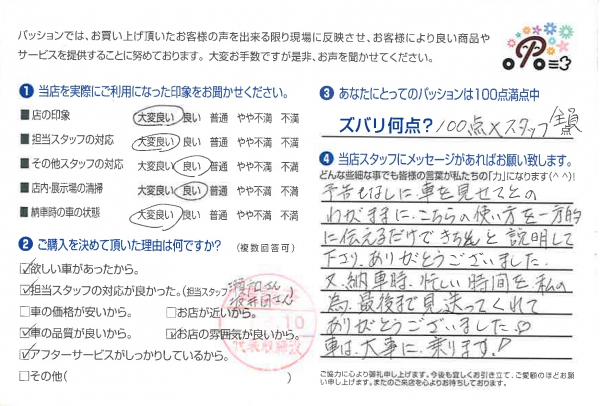 パッションでは、お買い上げ頂いたお客様の声を出来る限り現場に反映させ、お客様により良い商品や
サービスを提供することに努めております。大変お手数ですが是非、お声を聞かせてください。
❶ 当店を実際にご利用になった印象をお聞かせください。
■ 店の印象 大変良い 良い 普通 やや不満 不満
■ 担当スタッフの対応 大変良い 良い 普通 やや不満 不満
■ その他スタッフの対応 大変良い 良い 普通 やや不満 不満
■ 店内・展示場の清掃 大変良い 良い 普通 やや不満 不満
■ 納車時の車の状態 大変良い 良い 普通 やや不満 不満
❷ ご購入を決めて頂いた理由は何ですか? (複数回答可)
☑欲しい車があったから。
☑担当スタッフの対応が良かった。(担当スタッフ
□車の価格が安いから。 □お店が近いから。
☑車の品質が良いから。 ☑お店の雰囲気が良いから。
☑アフターサービスがしっかりしているから。
□その他( )
10
❸ あなたにとってのパッションは100点満点中
ズバリ何点? 100点×スタッフ全員
❹ 当店スタッフにメッセージがあればお願い致します。
どんな些細な事でも皆様の言葉が私たちの「力」になります(^^)!
予告もなしに、車を見せてとの
わがままに、こちらの使い方を一方的
に伝えるだけできちんと説明して
下さり、ありがとうございました。
又、納車時、忙しい時間を私の
為、最後まで見送ってくれて
ありがとうございました♡
車は、大事に、乗ります!
ご協力に心より御礼申し上げます。今後も宜しくお引き立て、ご愛顧のほどお願
い申し上げます。またのご来店を心よりお待ちしております。